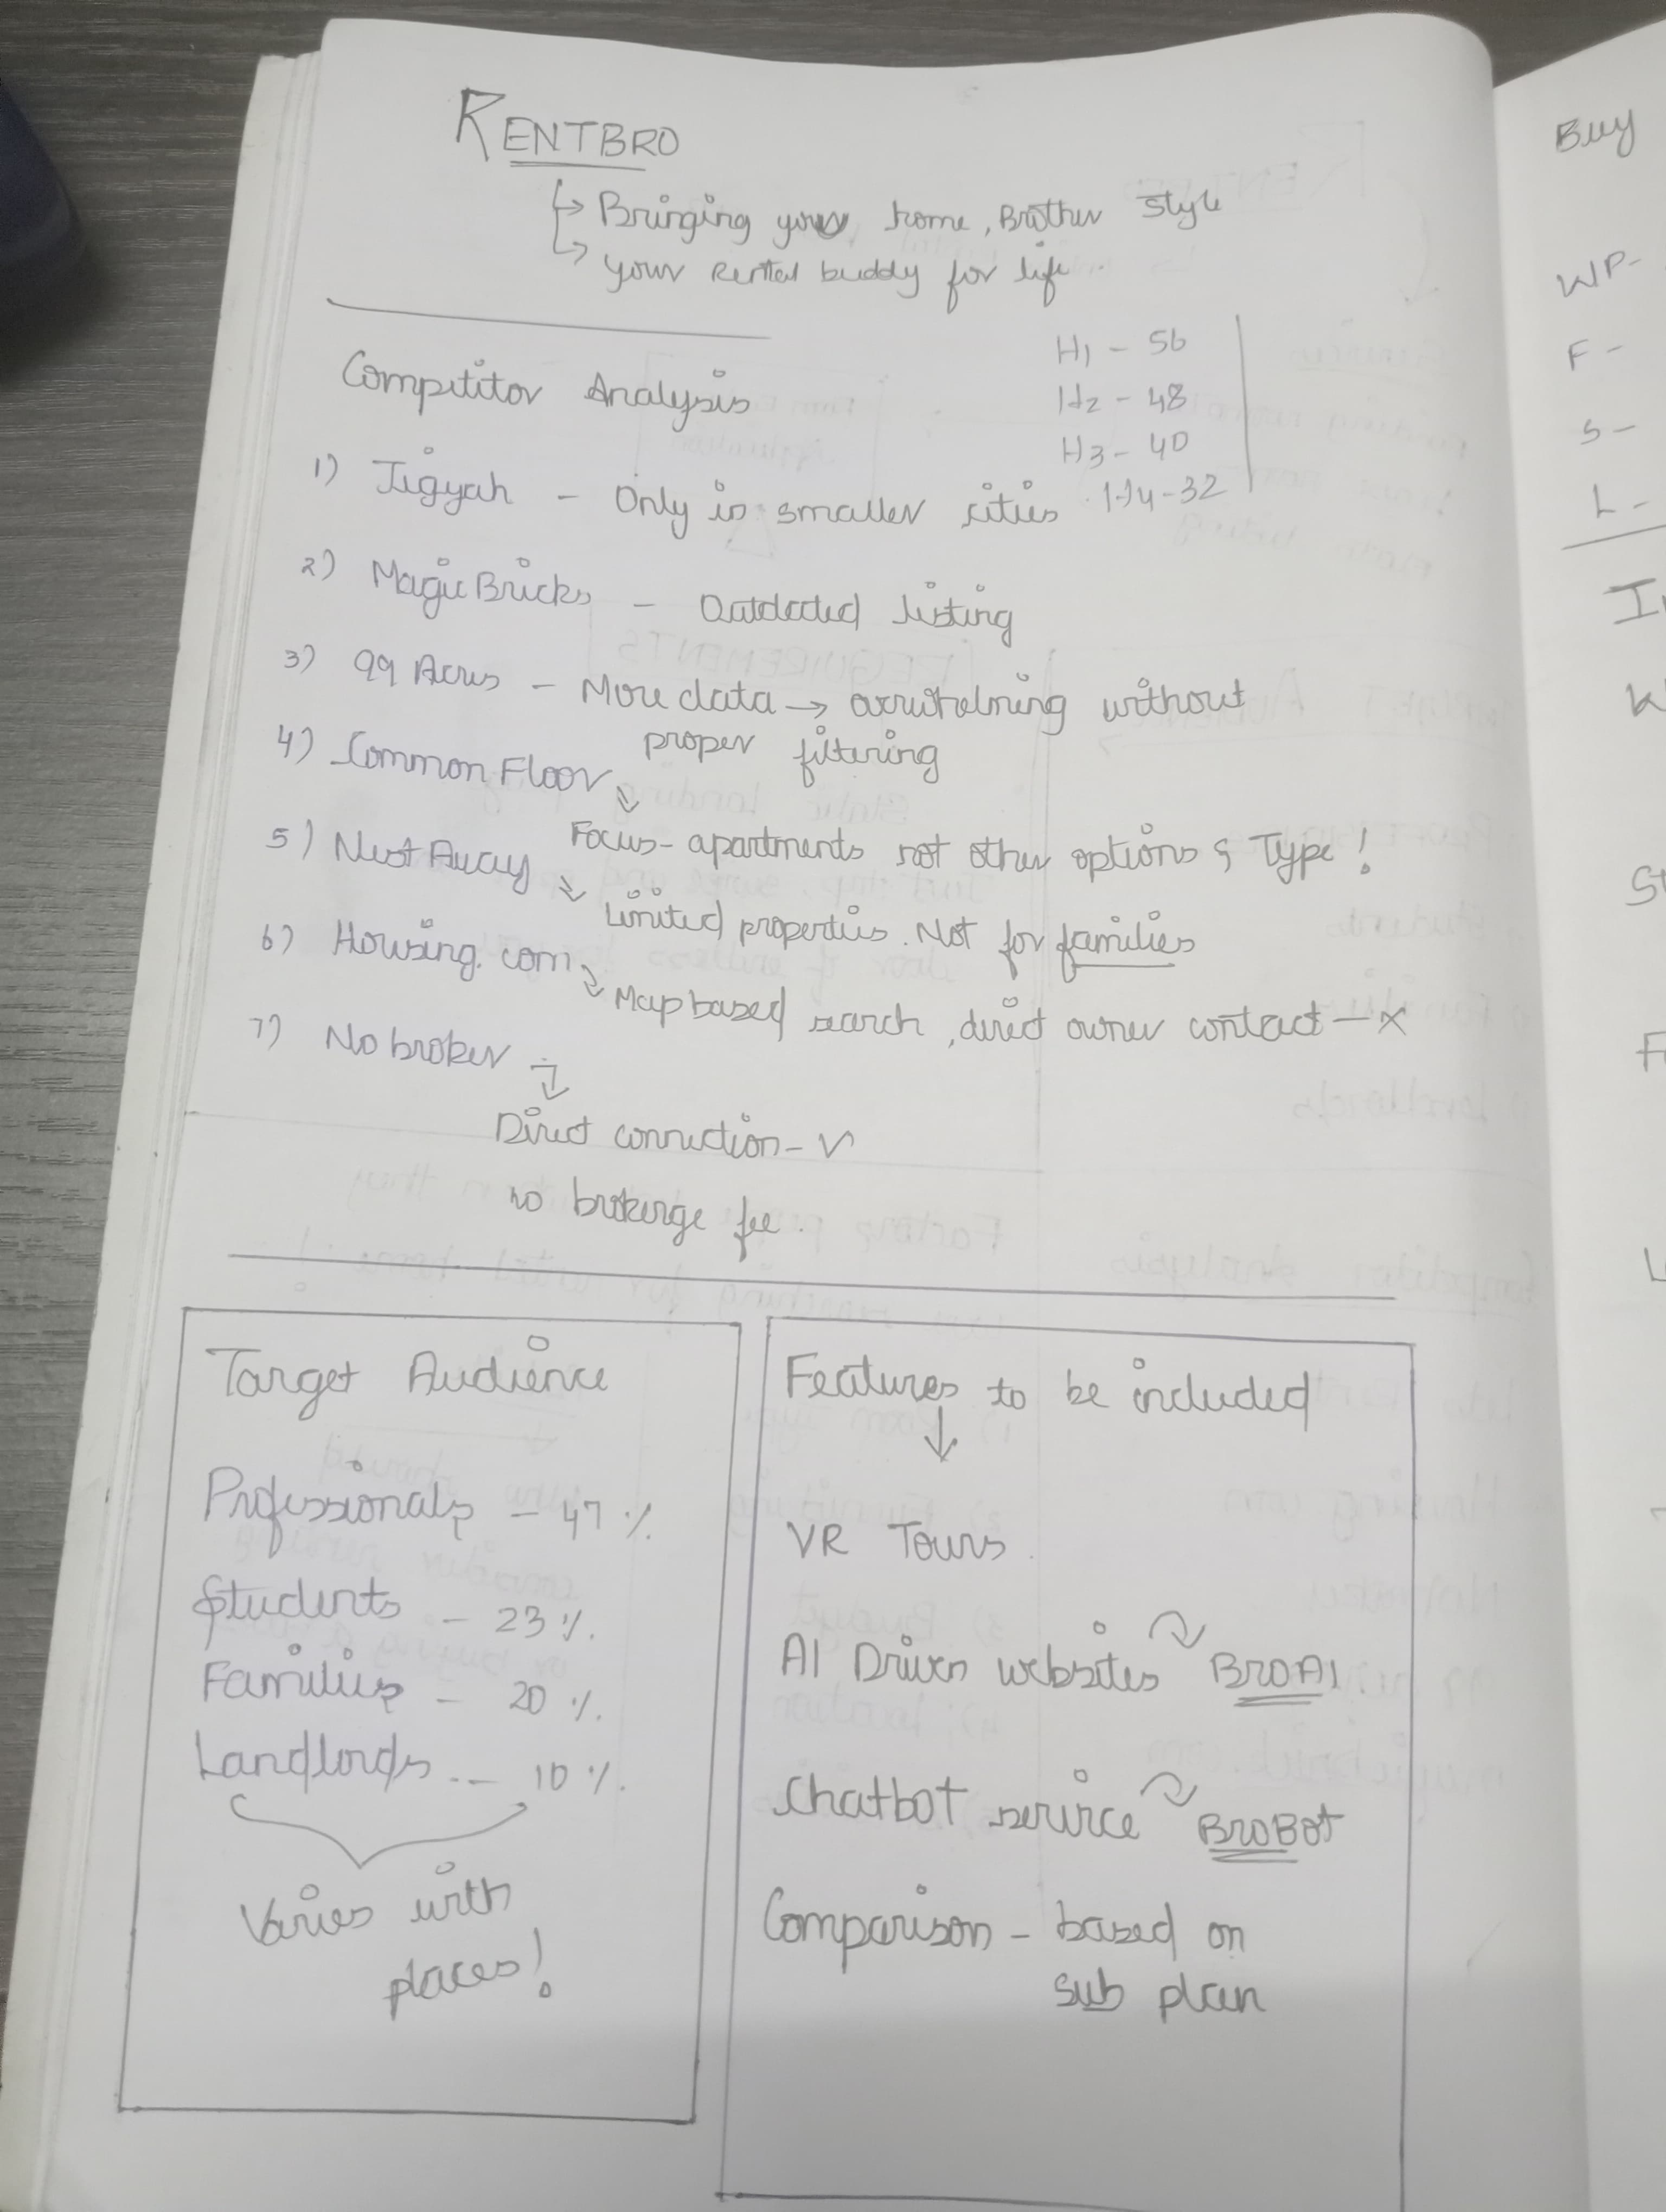 RENTBRO
↳ Bringing your home, Brother style
↳ your Rental buddy for life.
H1 - 56
H2 - 48
H3 - 40
H4 - 32
Compititor Analysis
1) Jigyah - Only in smaller cities
2) MagicBricks - Outdated listing
3) 99 Acres - More data → overwhelming without
proper filtering
4) Common Floor
Focus - apartments not other options & Type!
5) Nest Away
Limited properties. Not for families
6) Housing.com
Map based search, direct owner contact - ×
7) No broker
Direct connection - ✓
no brokerge fee.
Target Audience
Professionals - 47 %
Students - 23 %.
Families - 20 %.
Landlords - 10 %.
Varies with
places!
Features to be included
↓
VR Tours
AI Driven websites BroAI
Chatbot service BroBot
Comparison - based on
sub plan
Buy
WP-
F -
S -
L -